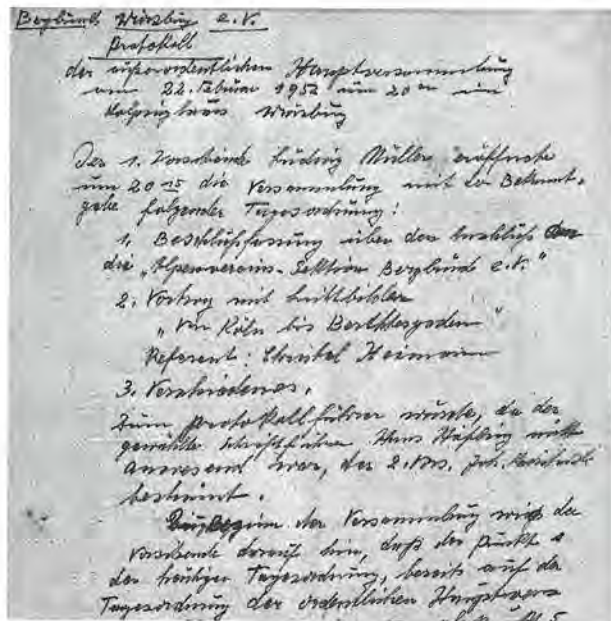 Bergbund Würzburg e.V.
Protokoll
der außerordentlichen Hauptversammlung
vom 22. Februar 1952 um 20 Uhr im
Kolpinghaus Würzburg
Der 1. Vorsitzende Ludwig Müller eröffnete
um 20 15 die Versammlung mit der Bekannt-
gabe folgender Tagesordnung:
1. Beschlußfassung über den Anschluß
die „Alpenvereins-Sektion Bergbund e.V."
2. Vortrag mit Lichtbilder
„Von Köln bis Berchtesgaden"
Referent: Christel Heimann
3. Verschiedenes.
Zum Protokollführer wurde, da der
gewählte Schriftführer Hans nicht
anwesend war, der 2. Vors. Joh.
bestimmt.
Beginn der Versammlung wies der
Vorsitzende darauf hin, daß der Punkt 1
der heutigen Tagesordnung, bereits auf der
Tagesordnung der ordentlichen Hauptvers